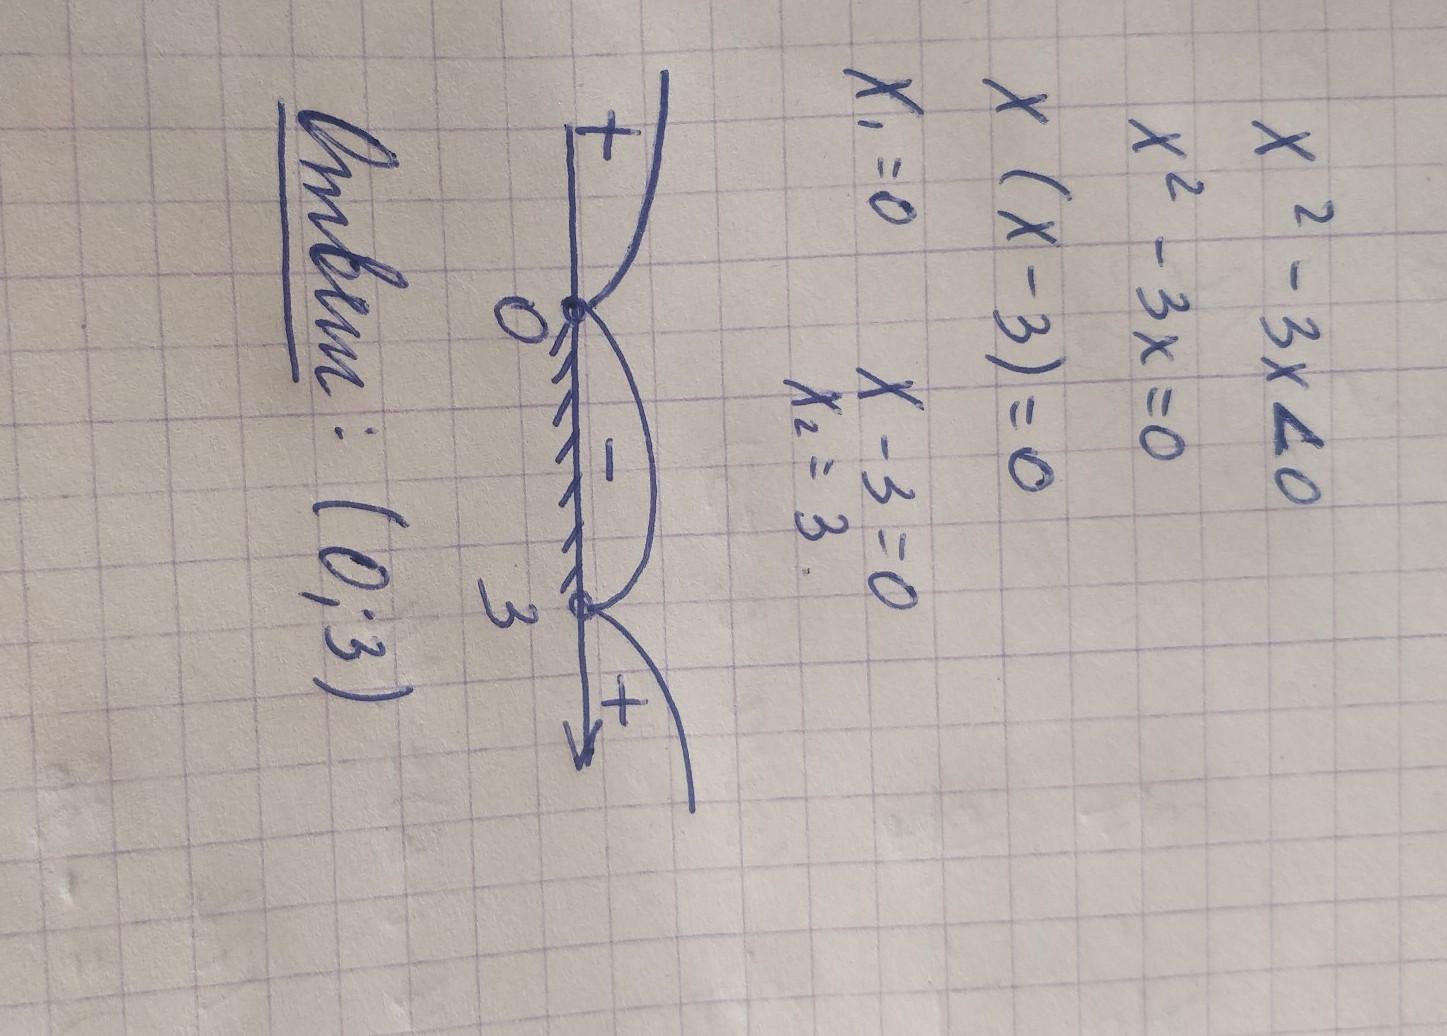 x² - 3x < 0
x² - 3x = 0
x (x - 3) = 0
x₁ = 0 x - 3 = 0
x₂ = 3
+ - +
0 3
Ответ: (0; 3)